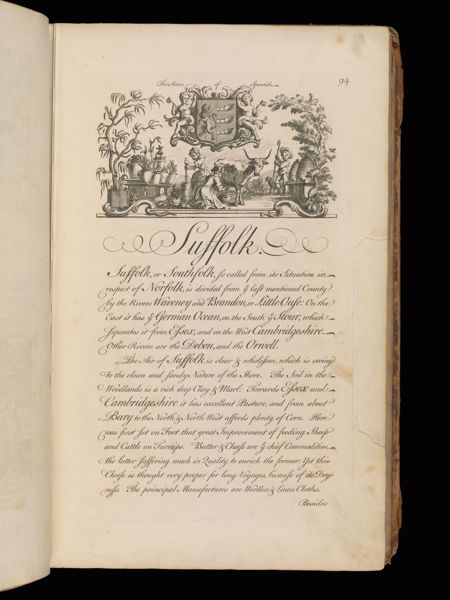 The Arms of Ipswich.
94
Suffolk.
Suffolk, or Southfolk, so called from its Situation in
respect of Norfolk, is divided from ÿ last mentioned County
by the Rivers Waveney and Brandon, or Little Ouse: On the
East it has ÿ German Ocean, on the South ÿ Stour, which
separates it from Essex, and on the West Cambridgeshire.
Other Rivers are the Deben, and the Orwell.
The Air of Suffolk is clear & wholesom, which is owing
to the clean and sandy Nature of the Shore. The Soil in the
Woodlands is a rich deep Clay & Marl. Towards Essex and
Cambridgeshire it has excellent Pasture, and from about
Bury to the North & North West affords plenty of Corn. Here
was first set on Foot that great Improvement of feeding Sheep
and Cattle on Turnips. Butter & Cheese are ÿ chief Commodities,
the latter suffering much in Quality to enrich the former: Yet this
Cheese is thought very proper for long Voyages, because of its Dry-
ness. The principal Manufactures are Woollen & Linen Cloths.
Besides